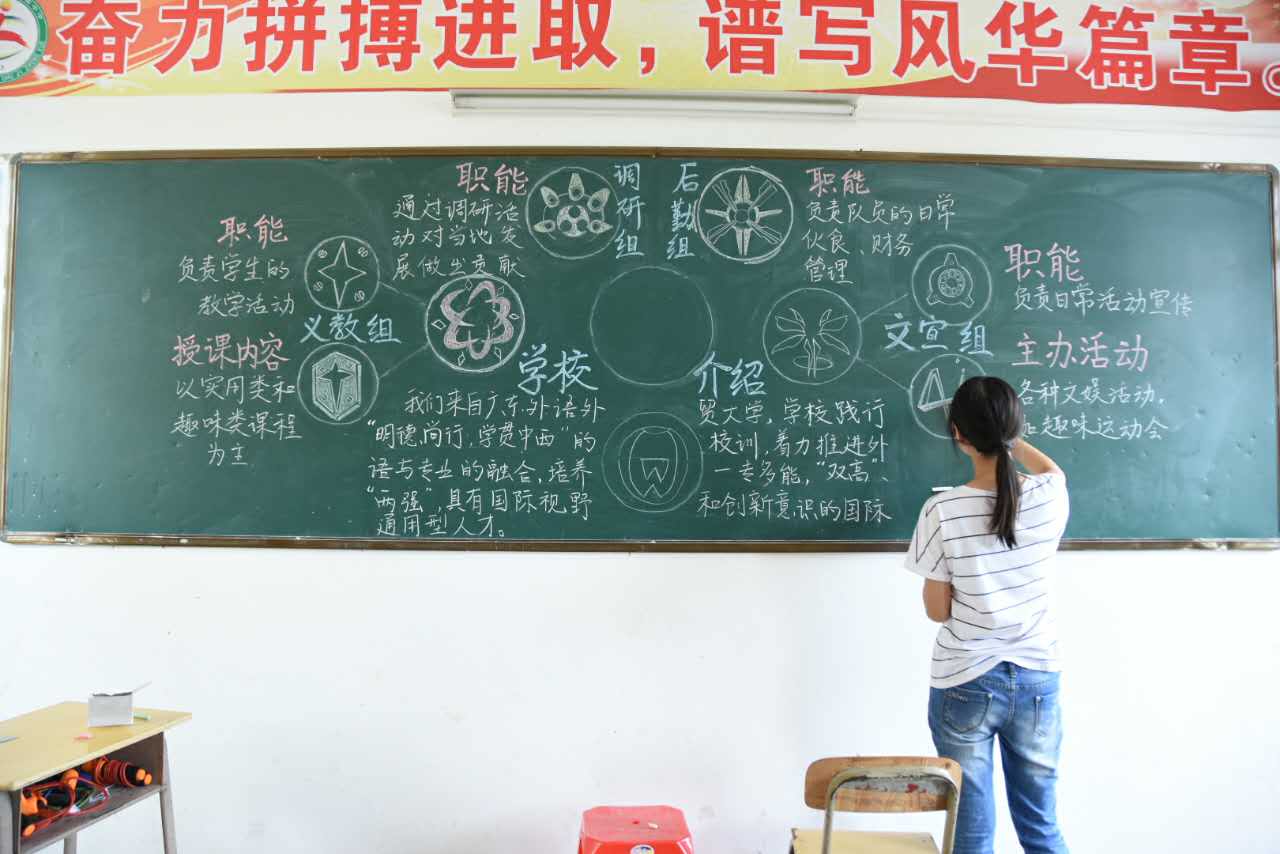 奋力拼搏进取，谱写风华篇章。
职能
通过调研活
动对当地发
展做出贡献
调研组
后勤组
职能
负责队员的日常
伙食、财务
管理
职能
负责学生的
教学活动
义教组
授课内容
以实用类和
趣味类课程
为主
文宣组
职能
负责日常活动宣传
主办活动
各种文娱活动,
趣味运动会
学校 介绍
我们来自广东外语外 贸大学,学校践行
“明德尚行,学贯中西”的 校训,着力推进外
语与专业的融合,培养 一专多能,“双高”、
“两强”,具有国际视野 和创新意识的国际
通用型人才。